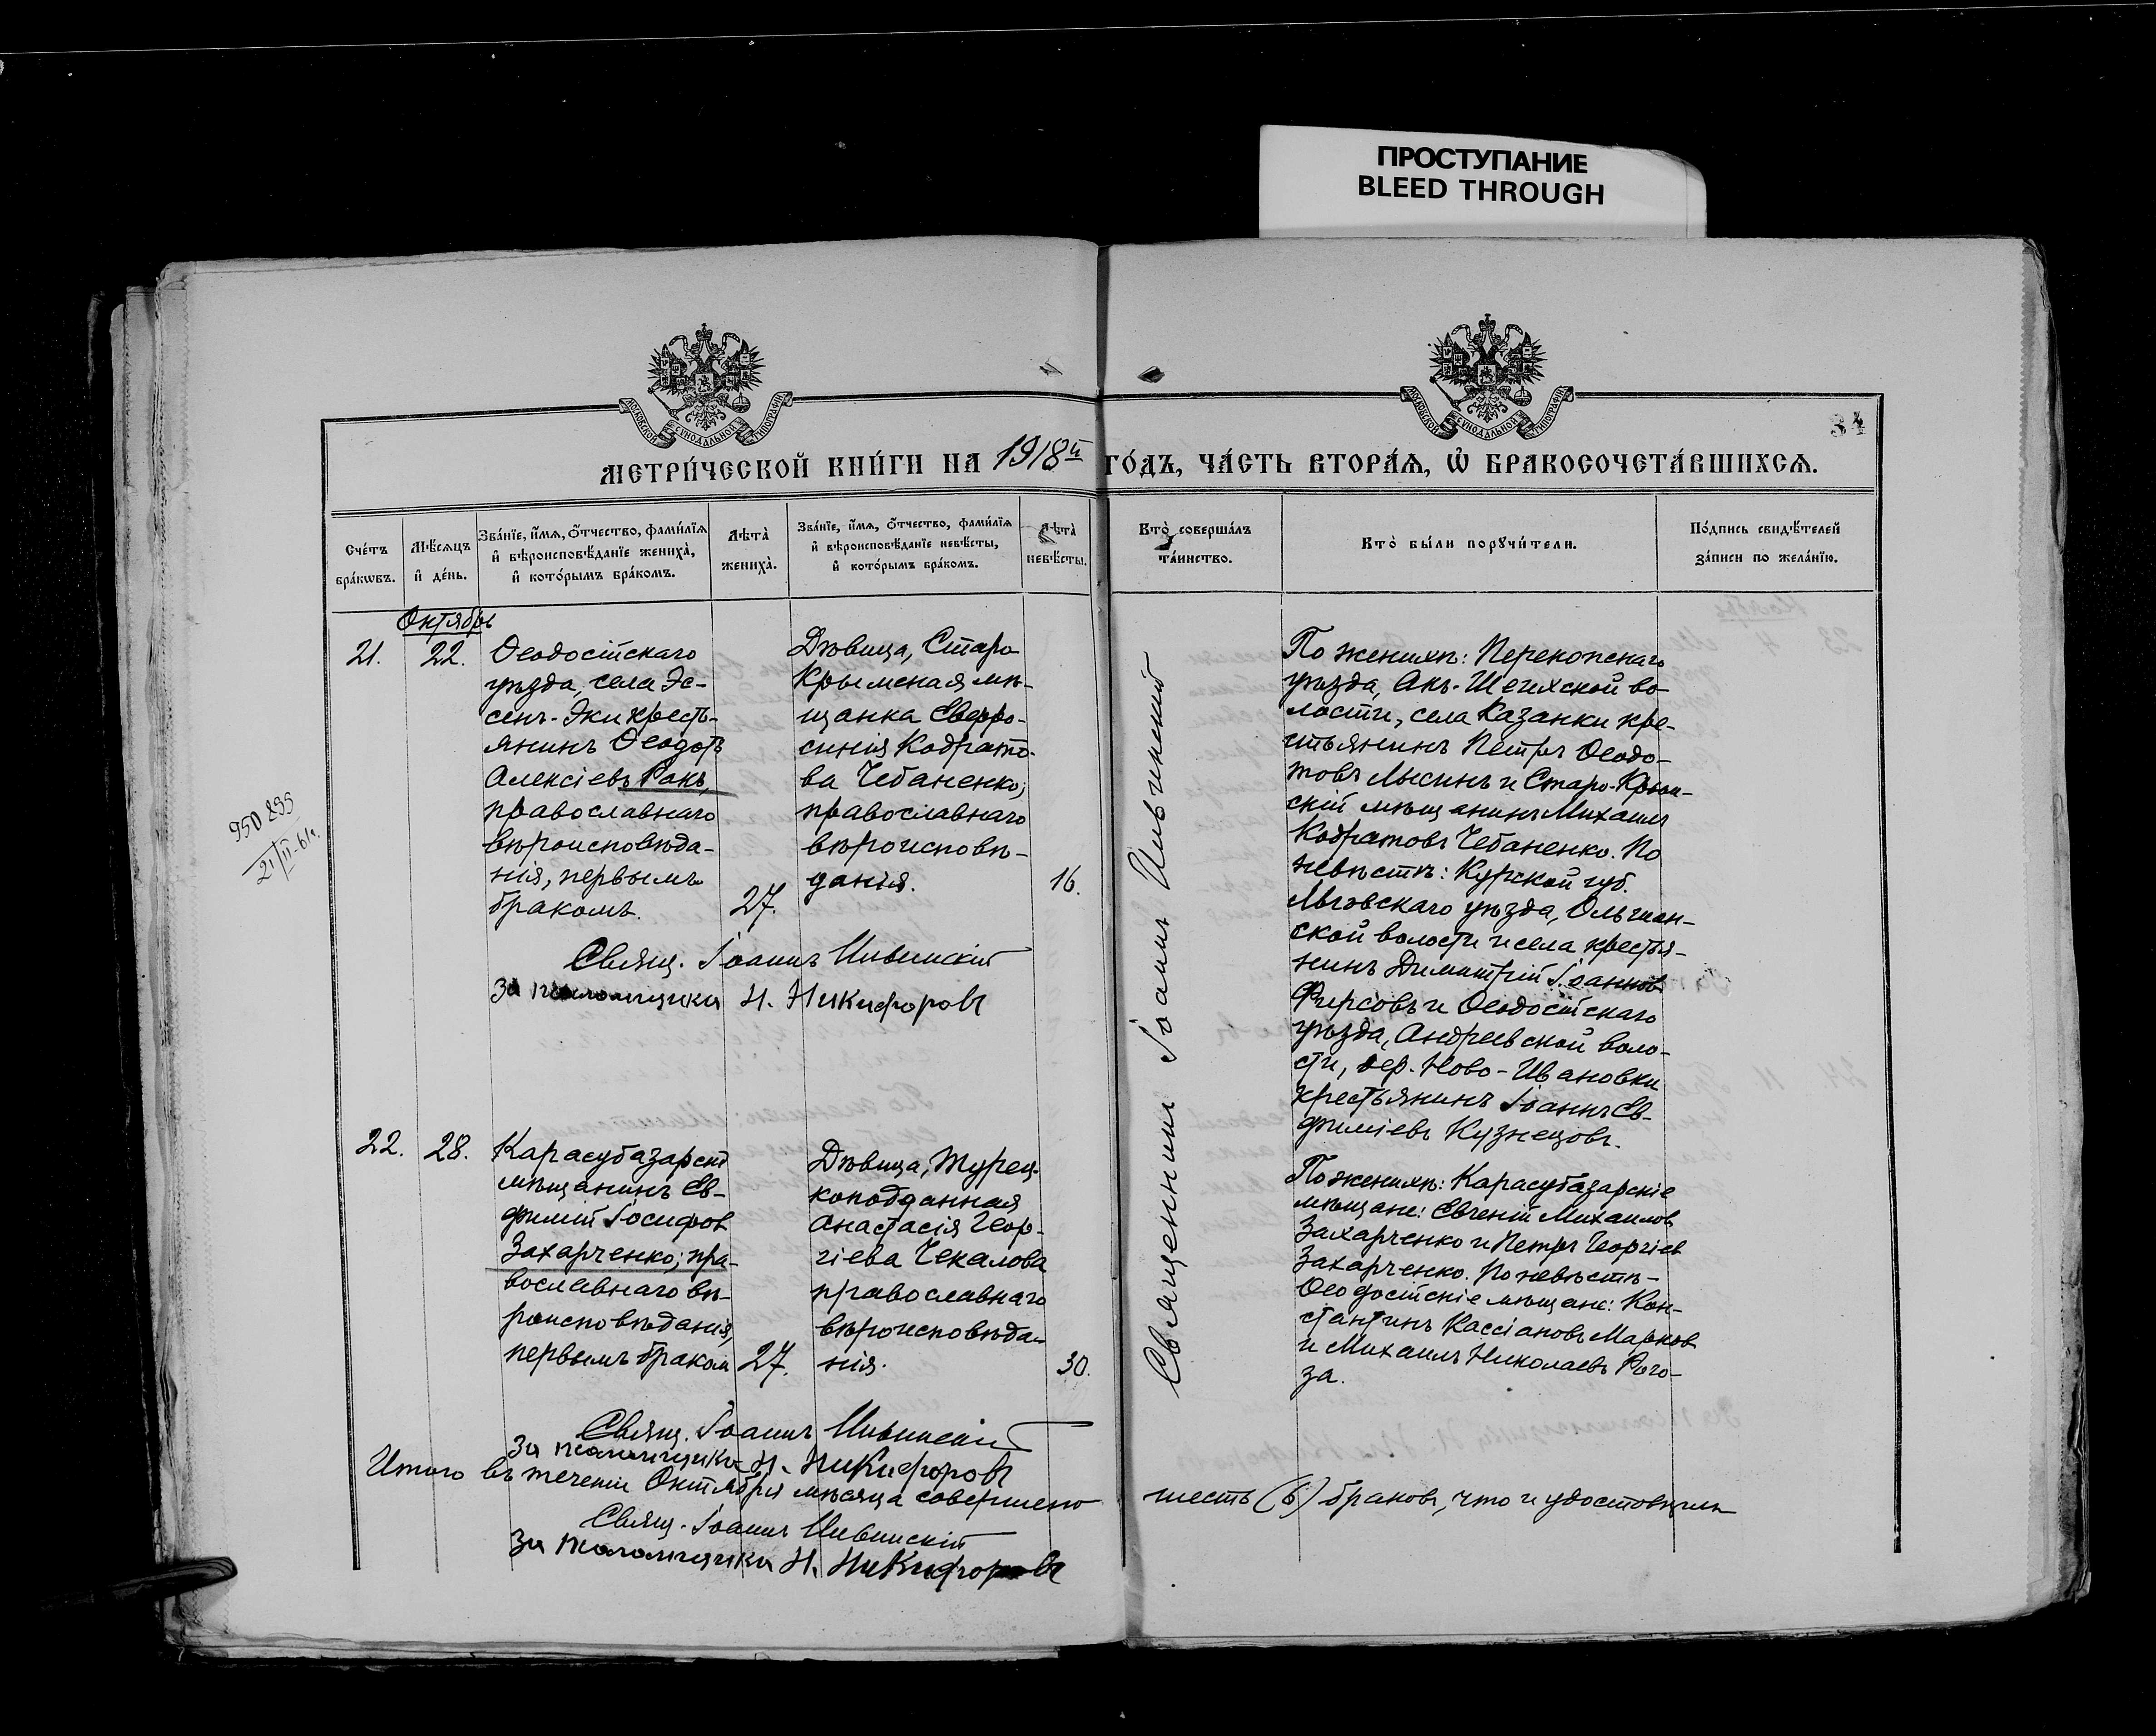 ПРОСТУПАНИЕ
BLEED THROUGH
МОСКОВСКОЙ СѴНОДАЛЬНОЙ ТИПОГРАФІИ
МОСКОВСКОЙ СѴНОДАЛЬНОЙ ТИПОГРАФІИ
34
МЕТРИ́ЧЕСКОЙ КНИ́ГИ НА 1918й ГО́ДЪ, ЧА́СТЬ ВТОРА́Ѧ, Ѡ҆ БРАКОСОЧЕТА́ВШИХСѦ.
Сче́тъ
бра́кѡвъ.
Мѣ́сѧцъ
и҆ де́нь.
Зва́нїе, и҆́мѧ, о҆́тчество, фами́лїѧ
и҆ вѣроисповѣ́данїе жениха̀,
и҆ кото́рымъ бра́комъ.
Лѣта̀
жениха̀.
Зва́нїе, и҆́мѧ, о҆́тчество, фами́лїѧ
и҆ вѣроисповѣ́данїе невѣ́сты,
и҆ кото́рымъ бра́комъ.
Лѣта̀
невѣ́сты.
Кто̀ соверша́лъ
та́инство.
Кто̀ бы́ли порꙋчи́тели.
По́дпись свидѣ́телей
за́писи по жела́нїю.
Октябрь
21.
22.
Ѳеодосійскаго
уѣзда, села Эс-
сенъ-Эки кресть-
янинъ Ѳеодотъ
Алексіевъ Ракъ,
православнаго
вѣроисповѣда-
нія, первымъ
бракомъ.
27.
Дѣвица, Старо
Крымская мѣ-
щанка Евфро-
синія Кодрато-
ва Чебаненко;
православнаго
вѣроисповѣ-
данія.
16.
Священникъ Іоаннъ
По женихѣ: Перекопскаго
уѣзда, Акъ-Шеихской во-
лости, села Казанки кре-
стьянинъ Петръ Ѳеодо-
товъ Лысинъ и Старо-Крым-
скій мѣщанинъ Михаилъ
Кодратовъ Чебаненко. По
невѣстѣ: Курской губ.
Льговскаго уѣзда, Ольшан-
ской волости и села крестья-
нинъ Димитрій Іоанновъ
Фирсовъ и Ѳеодосійскаго
уѣзда, Андреевской воло-
сти, дер. Ново-Ивановки
крестьянинъ Іоаннъ Ев-
фиміевъ Кузнецовъ.
950 295
21/II-61г.
Свящ. Іоаннъ
За псаломщика Н. Никифоровъ
22.
28.
Карасубазарскій
мѣщанинъ Ев-
фимій Іосифов
Захарченко; пра-
вославнаго вѣ-
роисповѣданія,
первымъ браком
27.
Дѣвица, Турец-
коподданная
Анастасія Геор-
гіева Чекалова
православнаго
вѣроисповѣда-
нія.
30.
По женихѣ: Карасубазарскіе
мѣщане: Евгеній Михаилов
Захарченко и Петръ Георгіев
Захарченко. По невѣстѣ-
Ѳеодосійскіе мѣщане: Кон-
стантинъ Кассіановъ Марков
и Михаилъ Николаевъ Рого-
за.
Свящ. Іоаннъ
За псаломщика Н. Никифоровъ
Итого въ теченіи Октября мѣсяца совершено шесть (6) браковъ, что и удостовѣряемъ
Свящ. Іоаннъ
За псаломщика Н. Никифоровъ